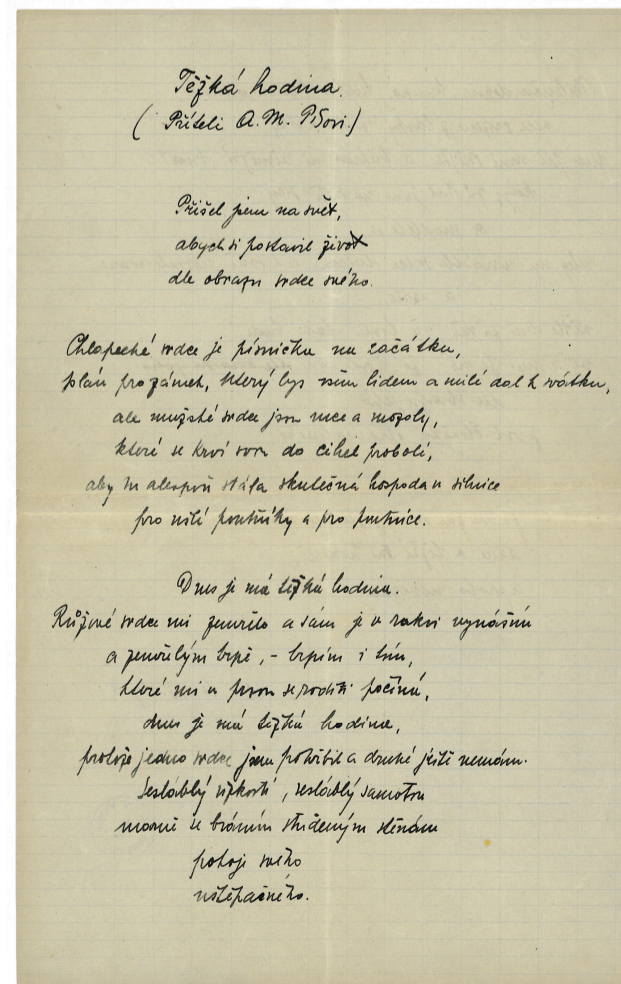 Těžká hodina.
(Příteli A. M. Píšovi.)
Přišel jsem na svět,
abych si postavil život
dle obrazu srdce svého.
Chlapecké srdce je písnička na začátku,
plán pro zámek, který bys všem lidem a milé dal k svátku,
ale mužské srdce jsou ruce a mozoly,
které se krví svou do cihel probolí,
aby tu alespoň stála skutečná hospoda u silnice
pro milé poutníky a pro poutnice.
Dnes je má těžká hodina.
Růžové srdce mi zemřelo a sám je v rakvi vynáším
a zemřelým trpě, - trpím i tím,
které mi v prsou se roditi počíná,
dnes je má těžká hodina,
protože jedno srdce jsem pohřbil a druhé ještě nemám.
Sesláblý úzkostí, sesláblý samotou
marně se bráním studeným stěnám
pokoje svého
uštěpačného.